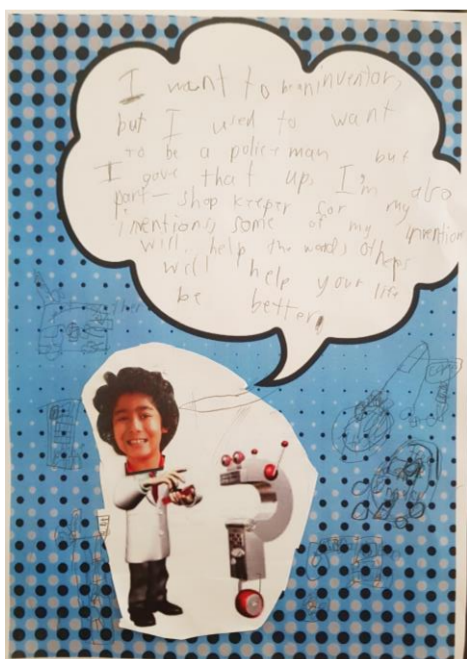 I want to be an inventor,
but I used to want
to be a police man but
I gave that up, I'm also
part-shop keeper for my
inventions, some of my inventions
will help the world, others
will help your life
be better